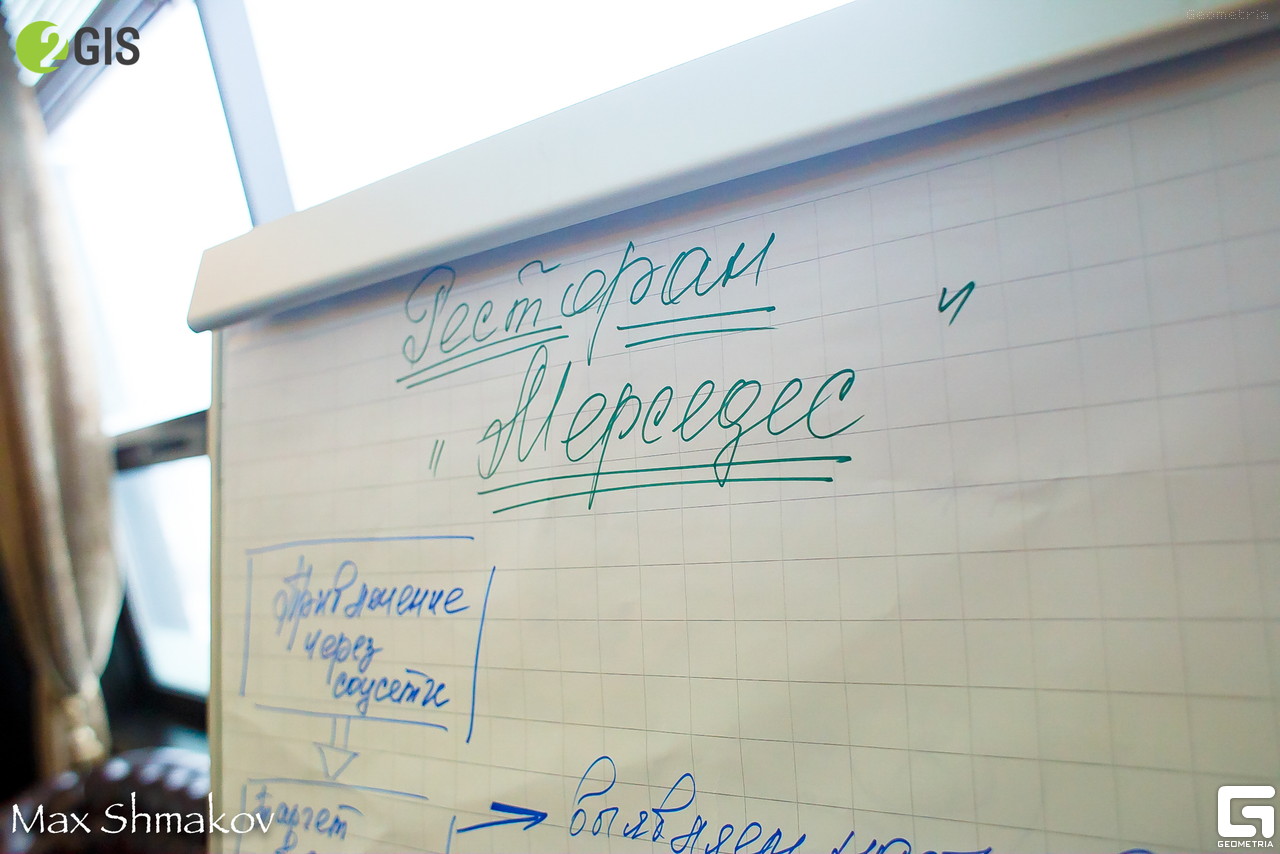 2GIS
Geometria
Ресторан
" Мерседес "
Привлечение
через
соцсети
Таргет
выявляем
Max Shmakov
GEOMETRIA